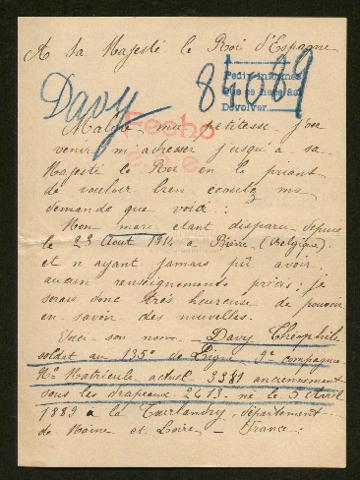 A Sa Majesté le Roi d'Espagne
Davy
84089
Pedir informes
que se hará al
Devolver
Hecho
Malgré ma petitesse j'ose
venir m'adresser jusqu'à sa
Majesté le Roi en le priant
de vouloir bien écoutez ma
demande que voici :
Mon mari étant disparu depuis
le 23 Aout 1914 à Bièvre (Belgique)
et n'ayant jamais pû avoir
aucun renseignements précis : je
serais donc très heureuse de pouvoir
en savoir des nouvelles.
Voici son nom — Davy Théophile
soldat au 135e de Ligne 9e compagnie
No Matricule actuel 3381 anciennement
sous les drapeaux 2413 né le 5 Avril
1889 à la Tourlandry, département
de Maine et Loire — France.